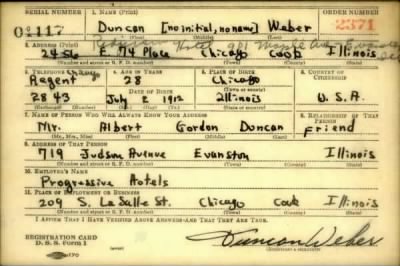 SERIAL NUMBER 1. NAME (Print) ORDER NUMBER
Duncan [no initial, no name] Weber 2371
(First) (Middle) (Last)
2. ADDRESS (Print) Hotel 901 Maple Ave
24 St E. 74 Place Chicago Cook Illinois
(Number and street or R. F. D. number) (Town) (County) (State)
3. TELEPHONE 4. AGE IN YEARS 5. PLACE OF BIRTH 6. COUNTRY OF CITIZENSHIP
Regent 28 Chicago
DATE OF BIRTH (Town or county)
2843 July 2 1912 Illinois U. S. A.
(Mo.) (Day) (Yr.) (State or country)
7. NAME OF PERSON WHO WILL ALWAYS KNOW YOUR ADDRESS 8. RELATIONSHIP OF THAT PERSON
Mr. Albert Gordon Duncan Friend
(Mr., Mrs., Miss) (First) (Middle) (Last)
9. ADDRESS OF THAT PERSON
719 Judson Avenue Evanston Illinois
(Number and street or R. F. D. number) (Town) (County) (State)
10. EMPLOYER'S NAME
Progressive Hotels
11. PLACE OF EMPLOYMENT OR BUSINESS
209 S. La Salle St. Chicago Cook Illinois
(Number and street or R. F. D. number) (Town) (County) (State)
I AFFIRM THAT I HAVE VERIFIED ABOVE ANSWERS AND THAT THEY ARE TRUE.
REGISTRATION CARD
D. S. S. Form 1
Duncan Weber